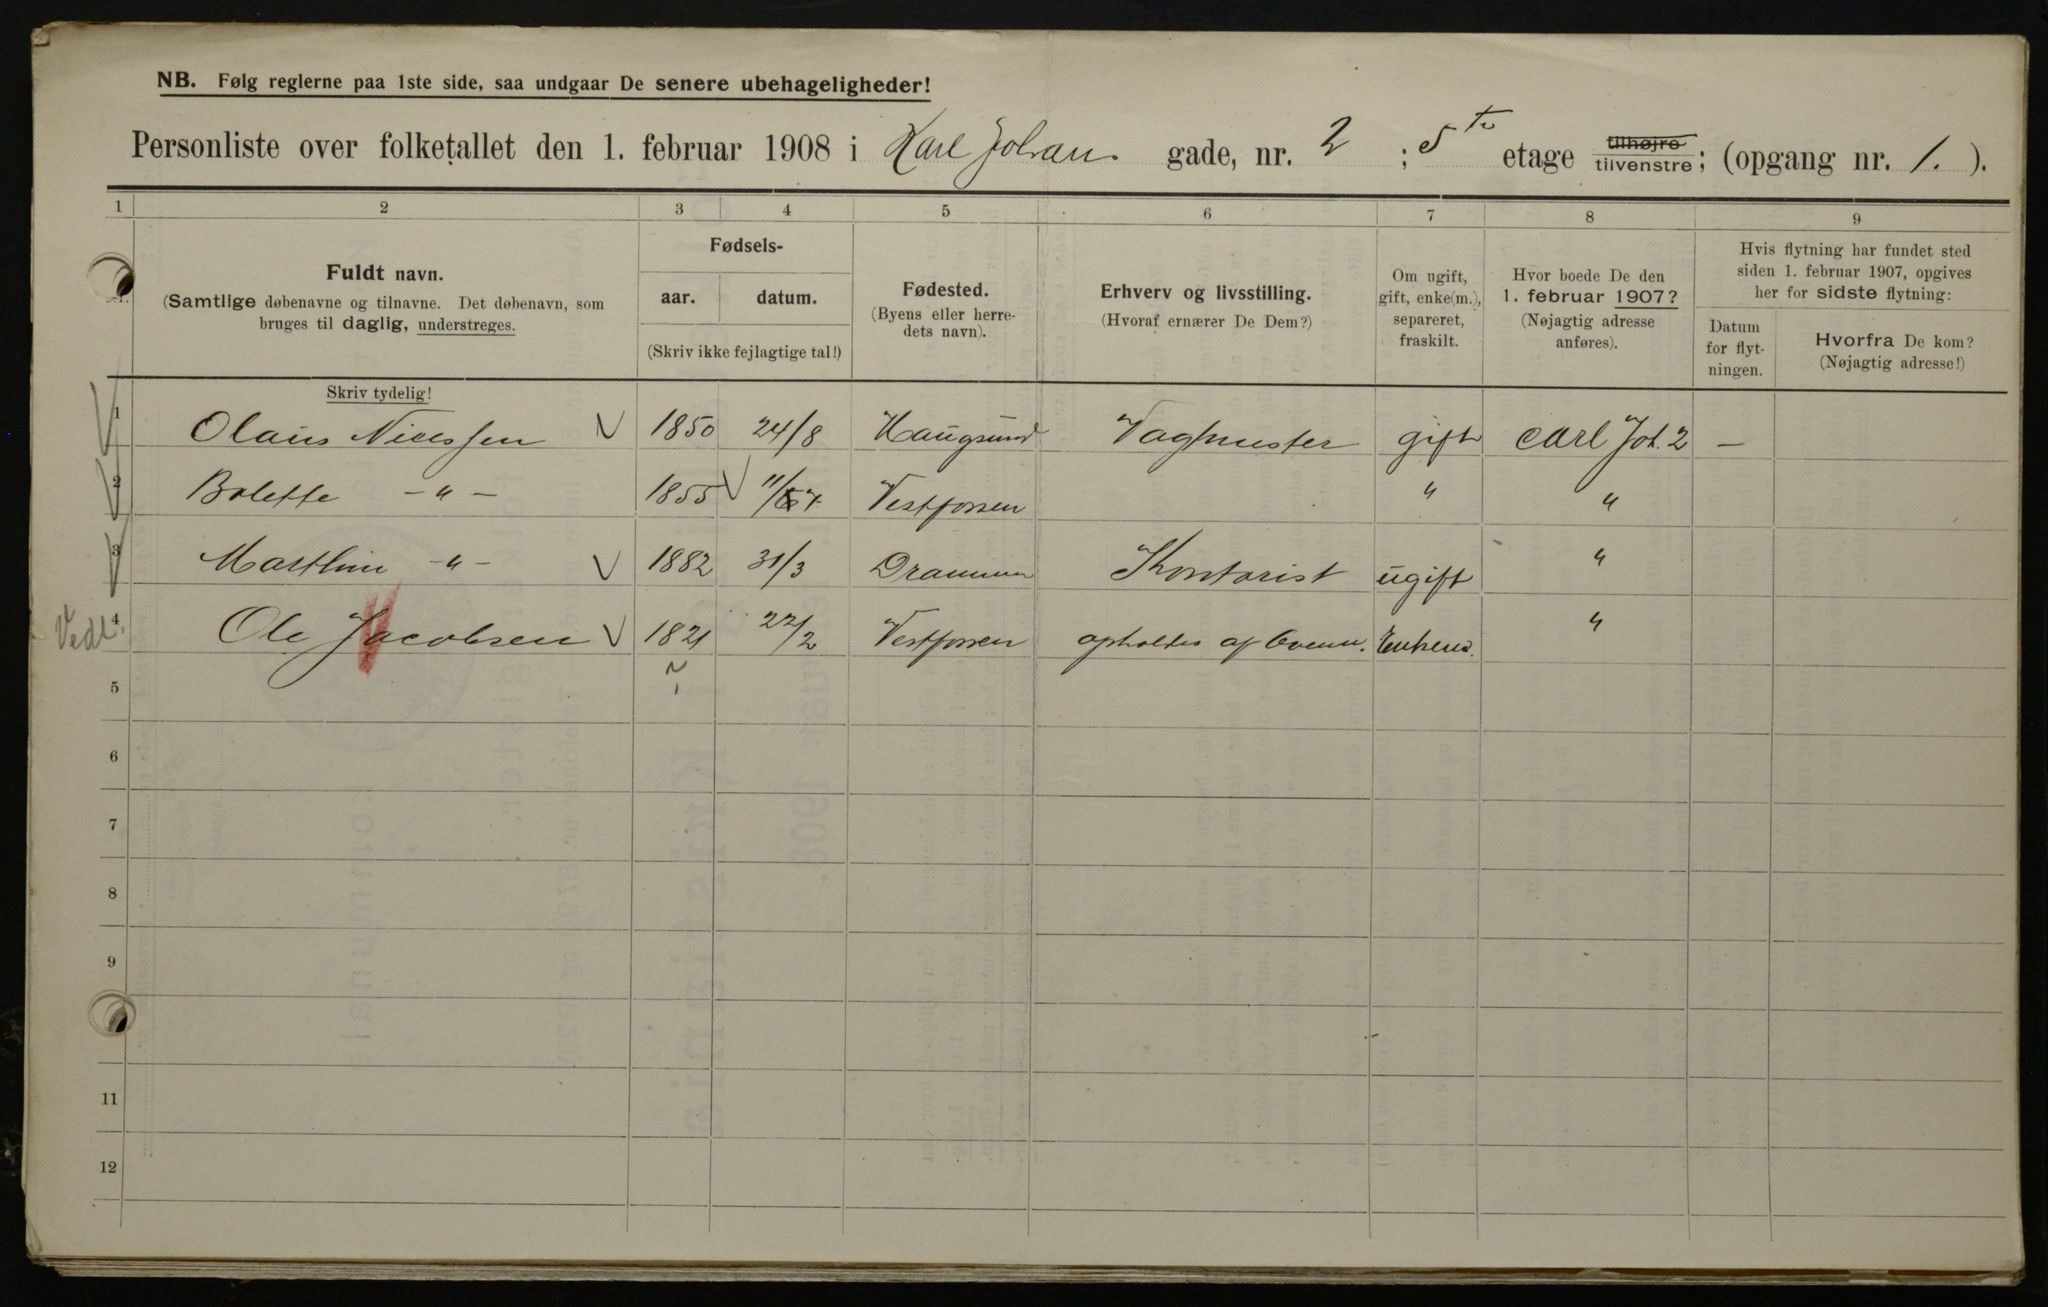 NB. Følg reglerne paa 1ste side, saa undgaar De senere ubehageligheder!
Personliste over folketallet den 1. februar 1908 i Karl Johans gade, nr. 2 ; 5te etage tilhøjre tilvenstre; (opgang nr. 1. ).
1 2 3 4 5 6 7 8 9
Fuldt navn.
(Samtlige døbenavne og tilnavne. Det døbenavn, som
bruges til daglig, understreges.
Fødsels-
aar. datum.
(Skriv ikke fejlagtige tal!)
Fødested.
(Byens eller herre-
dets navn).
Erhverv og livsstilling.
(Hvoraf ernærer De Dem?)
Om ugift,
gift, enke(m.),
separeret,
fraskilt.
Hvor boede De den
1. februar 1907?
(Nøjagtig adresse
anføres).
Hvis flytning har fundet sted
siden 1. februar 1907, opgives
her for sidste flytning:
Datum
for flyt-
ningen.
Hvorfra De kom?
(Nøjagtig adresse!)
Skriv tydelig!
1 Olaus 1850 24/8 Haugsund gift Carl Joh. 2 —
2 Bolette — " — 1855 Vestfossen " "
3 — " — 1882 31/3 Drammen Kontorist ugift "
Vedl. 4 Ole Jacobsen 1821 22/2 Vestfossen opholdes af "
5
6
7
8
9
11
12